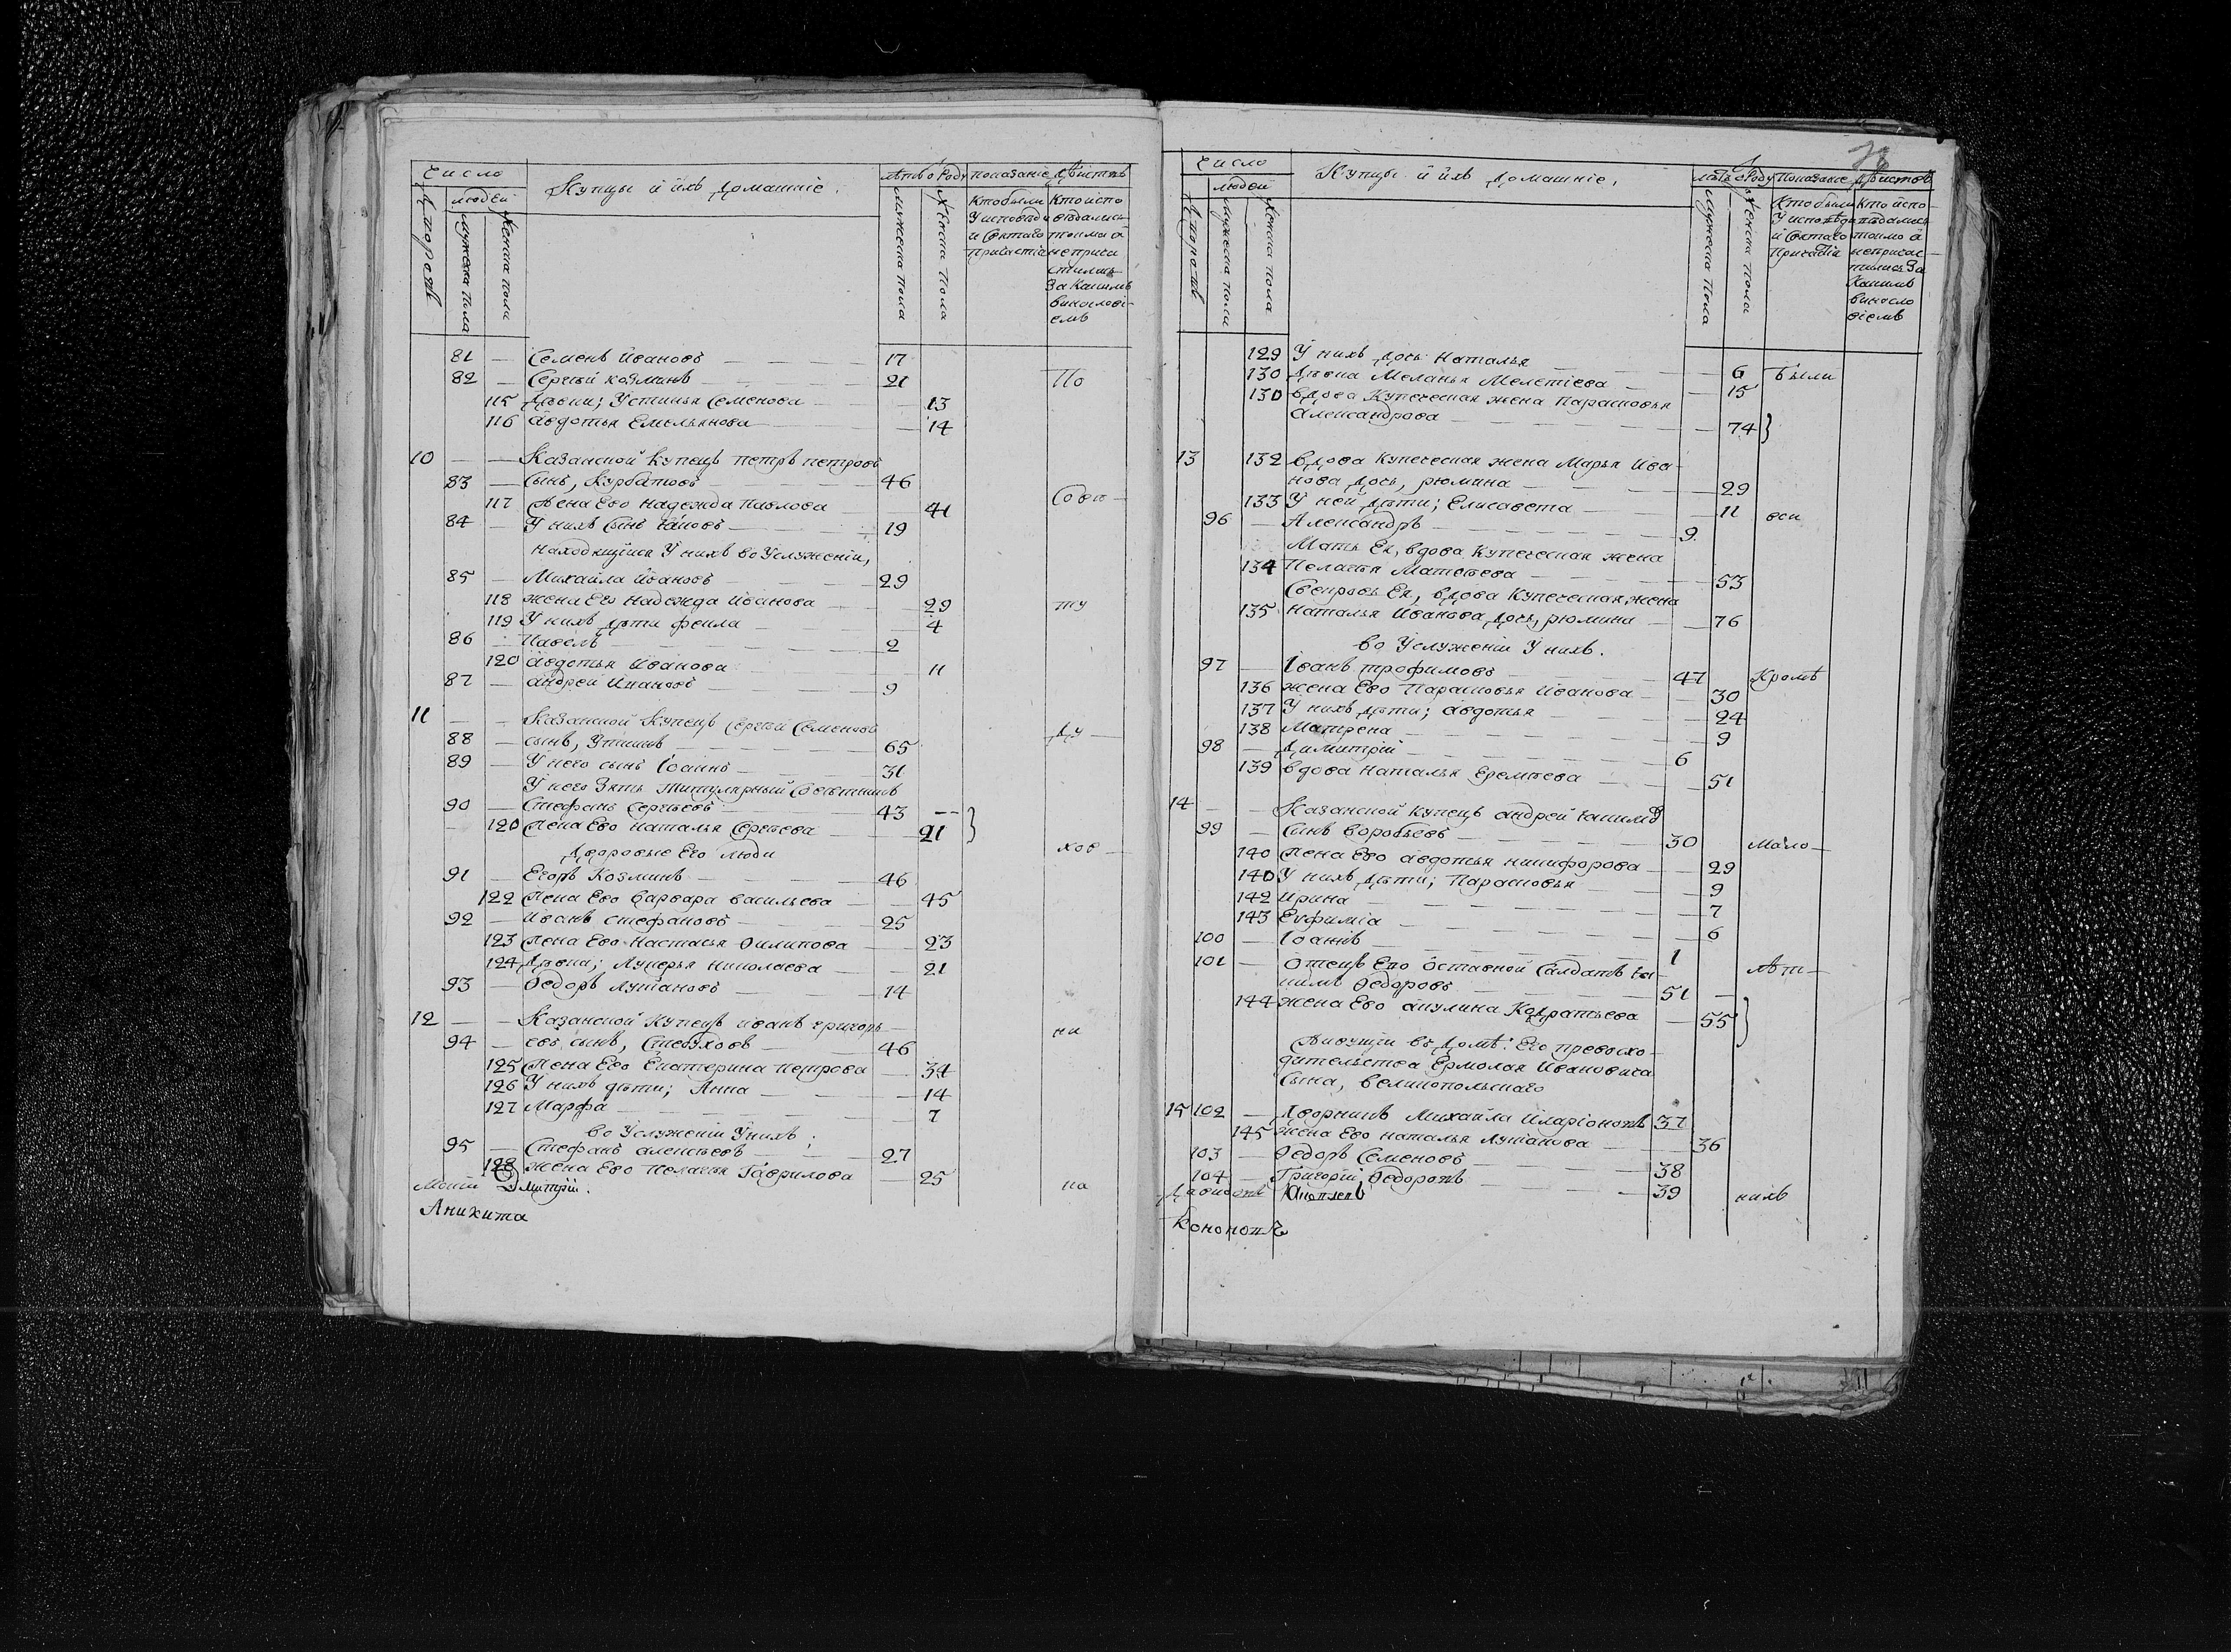 Число
Купцы и ихъ домашние.
лѣтъ о роду
показание дѣиствъ
дворовъ
людей
мужеска пола
женска пола
мужеска пола
женска пола
Кто были
у исповеди
и святаго
причастiя
Кто испо
ведались
токмо а
не прича
стились
За какимъ
винослові-
емъ
81 — Семенъ Ивановъ — 17
82 — Сергѣй Козминъ — 21 По
115 Дѣвки; Устинья Семенова — 13
116 Авдотья Емельянова — 14
10 — — Казанской Купецъ Петръ Петровъ
83 — сынъ, Курбатовъ — 46
117 Жена Ево Надежда Павлова — 41 Совѣ-
84 — У нихъ сынъ — 19
находящїися У нихъ во Услуженiи,
85 — Михайла Ивановъ — 29
118 жена Ево Надежда Иванова — 29 ту
119 У нихъ дѣти Фекла — 4
86 — Павелъ — 2
120 Авдотья Иванова 11
87 — Андрей Ивановъ — 9
11 — — Казанской Купецъ Сергѣй Семеновъ
88 — сынъ, — 65 Ду-
89 — У него сынъ Iоаннъ — 31
У него Зять Титулярный Совѣтникъ
90 — Стефанъ Сергѣевъ — 43 —
120 Жена Ево Наталья Сергѣева — 21
Дворовые Его люди хов-
91 — Егоръ Козминъ — 46
122 Жена Ево Варвара Васильева — 45
92 — Иванъ Стефановъ — 25
123 Жена Ево Настасья Филипова — 23
124 Дѣвка; Лукерья Николаева — 21
93 — Ѳедоръ Лукановъ — 14
12 — — Казанской Купецъ Иванъ Григорь- ни
94 — евъ сынъ, — 46
125 Жена Ево Екатерина Петрова — 34
126 У нихъ дѣти; Анна — 14
127 Марфа — 7
во Услуженiи Унихъ;
95 — Стефанъ Алексѣевъ — 27
128 жена Ево Пелагья Гаврилова — 25 ка
Дмитрiи.
Аникита
78
Число
Купцы и ихъ домашнiе,
лѣтъ о роду
Показанiе дѣиствъ
дворовъ
людей
мужеска пола
женска пола
мужеска пола
женска пола
Кто были
У исповѣди
и святаго
Причастiя
Кто испо-
ведались
токмо а
непричас-
тились За
Какимъ
винословіемъ
129 У нихъ дочь Наталья — 6 Были
130 Дѣвка Меланья Мелетiева — 15
130 вдова Купеческая жена Парасковья
Александрова — 74
13 132 вдова Купеческая жена Марья Ива-
нова дочь, рюмина — 29
133 У ней дѣти; Елисавета — 11 вси
96 — Александръ — 9
Мать Ея, вдова Купеческая жена
134 Пелагья Матвѣева — 53
Свекровь Ея, вдова Купеческая жена
135 Наталья Иванова дочь, рюмина — 76
во Услуженiи У нихъ.
97 — Iванъ Трофимовъ — 47 Кромѣ
136 жена Ево Парасковья Иванова — 30
137 У нихъ дѣти; Авдотья — 24
138 Матрена — 9
98 — Димитрiй — 6
139 вдова Наталья Еремѣева — 51
14 — — Казанской Купецъ Андрей
99 — сынъ Воробьевъ — 30 Мало-
140 Жена Ево Авдотья Никифорова — 29
140 У нихъ дѣти; Парасковья — 9
142 Ирина — 7
143 Евфимiа — 6
100 — Iоаннъ — 1
101 — Отецъ Ево Отставной Салдатъ лѣт-
Ѳедоровъ — 51 —
144 жена Ево Акулина Кодратьева — 55
Живущiи въ Домѣ: Его превосхо-
дительства Ермолая Ивановича
Сына, великопольскаго
15 102 — Дворникъ Михайла Иларiоновъ 37
145 жена Ево Наталья Луканова — 36
103 — Ѳедоръ Семеновъ — 38
104 — Григорiй Ѳедоровъ — 39 нихъ